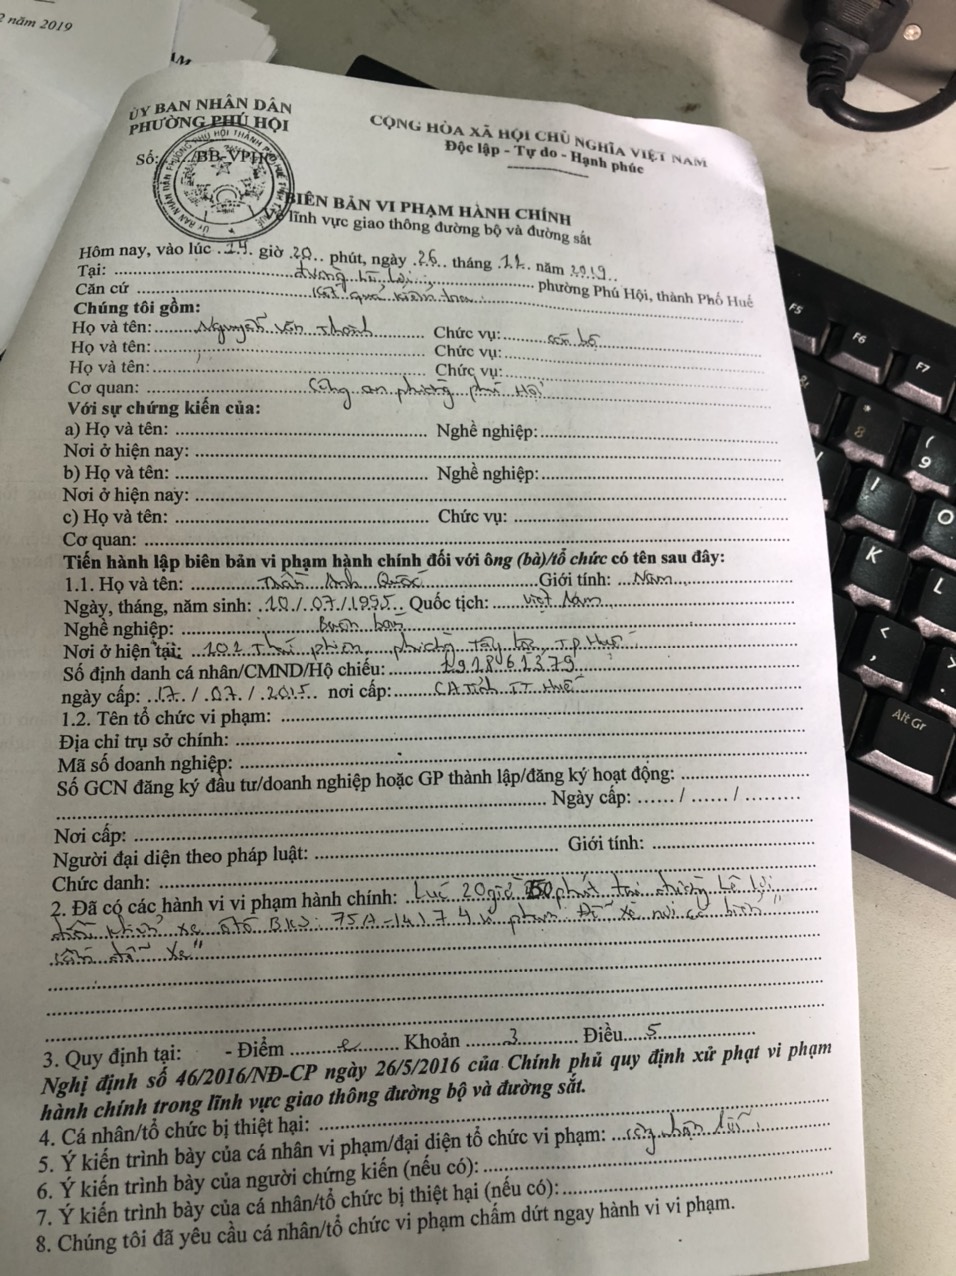 2 năm 2019
ỦY BAN NHÂN DÂN
PHƯỜNG PHÚ HỘI
CỘNG HÒA XÃ HỘI CHỦ NGHĨA VIỆT NAM
Độc lập - Tự do - Hạnh phúc
Số: /BB-VPHC
BIÊN BẢN VI PHẠM HÀNH CHÍNH
lĩnh vực giao thông đường bộ và đường sắt
Hôm nay, vào lúc giờ 20 phút, ngày 26 tháng năm 2019
Tại: đường Lê Lợi phường Phú Hội, thành Phố Huế
Căn cứ kết quả kiểm tra
Chúng tôi gồm:
Họ và tên: Nguyễn Văn Chức vụ: cán bộ
Họ và tên: Chức vụ:
Họ và tên: Chức vụ:
Cơ quan: Công an phường Phú Hội
Với sự chứng kiến của:
a) Họ và tên: Nghề nghiệp:
Nơi ở hiện nay:
b) Họ và tên: Nghề nghiệp:
Nơi ở hiện nay:
c) Họ và tên: Chức vụ:
Cơ quan:
Tiến hành lập biên bản vi phạm hành chính đối với ông (bà)/tổ chức có tên sau đây:
1.1. Họ và tên: Anh Quốc Giới tính: Nam
Ngày, tháng, năm sinh: 10/07/1995 Quốc tịch: Việt Nam
Nghề nghiệp: Buôn bán
Nơi ở hiện tại: 102 Thái Phiên, phường Tây Lộc, TP Huế
Số định danh cá nhân/CMND/Hộ chiếu: 191861279
ngày cấp: 17 / 07 / 2015 nơi cấp: CA Tỉnh TT Huế
1.2. Tên tổ chức vi phạm:
Địa chỉ trụ sở chính:
Mã số doanh nghiệp:
Số GCN đăng ký đầu tư/doanh nghiệp hoặc GP thành lập/đăng ký hoạt động:
Ngày cấp: / /
Nơi cấp:
Người đại diện theo pháp luật: Giới tính:
Chức danh:
2. Đã có các hành vi vi phạm hành chính: Lúc 20 giờ phút tại đường Lê Lợi
điều khiển xe ôtô BKS: 75A-141.74 vi phạm "Đỗ xe nơi có biển
cấm đỗ xe"
3. Quy định tại: - Điểm e Khoản 3 Điều 5
Nghị định số 46/2016/NĐ-CP ngày 26/5/2016 của Chính phủ quy định xử phạt vi phạm
hành chính trong lĩnh vực giao thông đường bộ và đường sắt.
4. Cá nhân/tổ chức bị thiệt hại:
5. Ý kiến trình bày của cá nhân vi phạm/đại diện tổ chức vi phạm: công nhận lỗi
6. Ý kiến trình bày của người chứng kiến (nếu có):
7. Ý kiến trình bày của cá nhân/tổ chức bị thiệt hại (nếu có):
8. Chúng tôi đã yêu cầu cá nhân/tổ chức vi phạm chấm dứt ngay hành vi vi phạm.
F5
F6
F7
*
8
(
9
I
O
K
L
<
,
>
.
Alt Gr